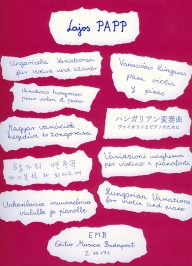 Lajos PAPP
Ungarische Variationen
für Violine und Klavier
Variaciónes húngaras
para violín
y piano
Variations hongroises
pour violon et piano
ハンガリアン変奏曲
ヴァイオリンとピアノのために
Magyar variációk
hegedűre és zongorára
Variazioni ungheresi
per violino e pianoforte
헝가리 변주곡
Unkarilaisia muunnelmia
viululle ja pianolle
Hungarian Variations
for violin and piano
EMB
Editio Musica Budapest